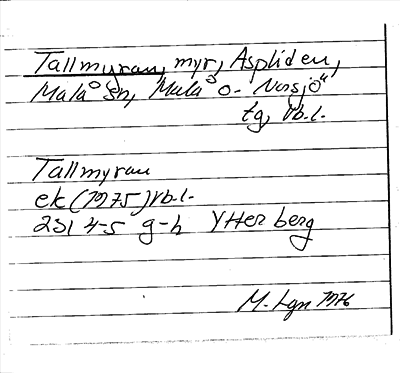 Tallmyran, myr, Aspliden,
Malå sn, Malå o. Norsjö
tg, Vb.l.
Tallmyran
ek (1975) Vb.l.
23I 4-5 g-h Ytterberg
M. Lgn 1976